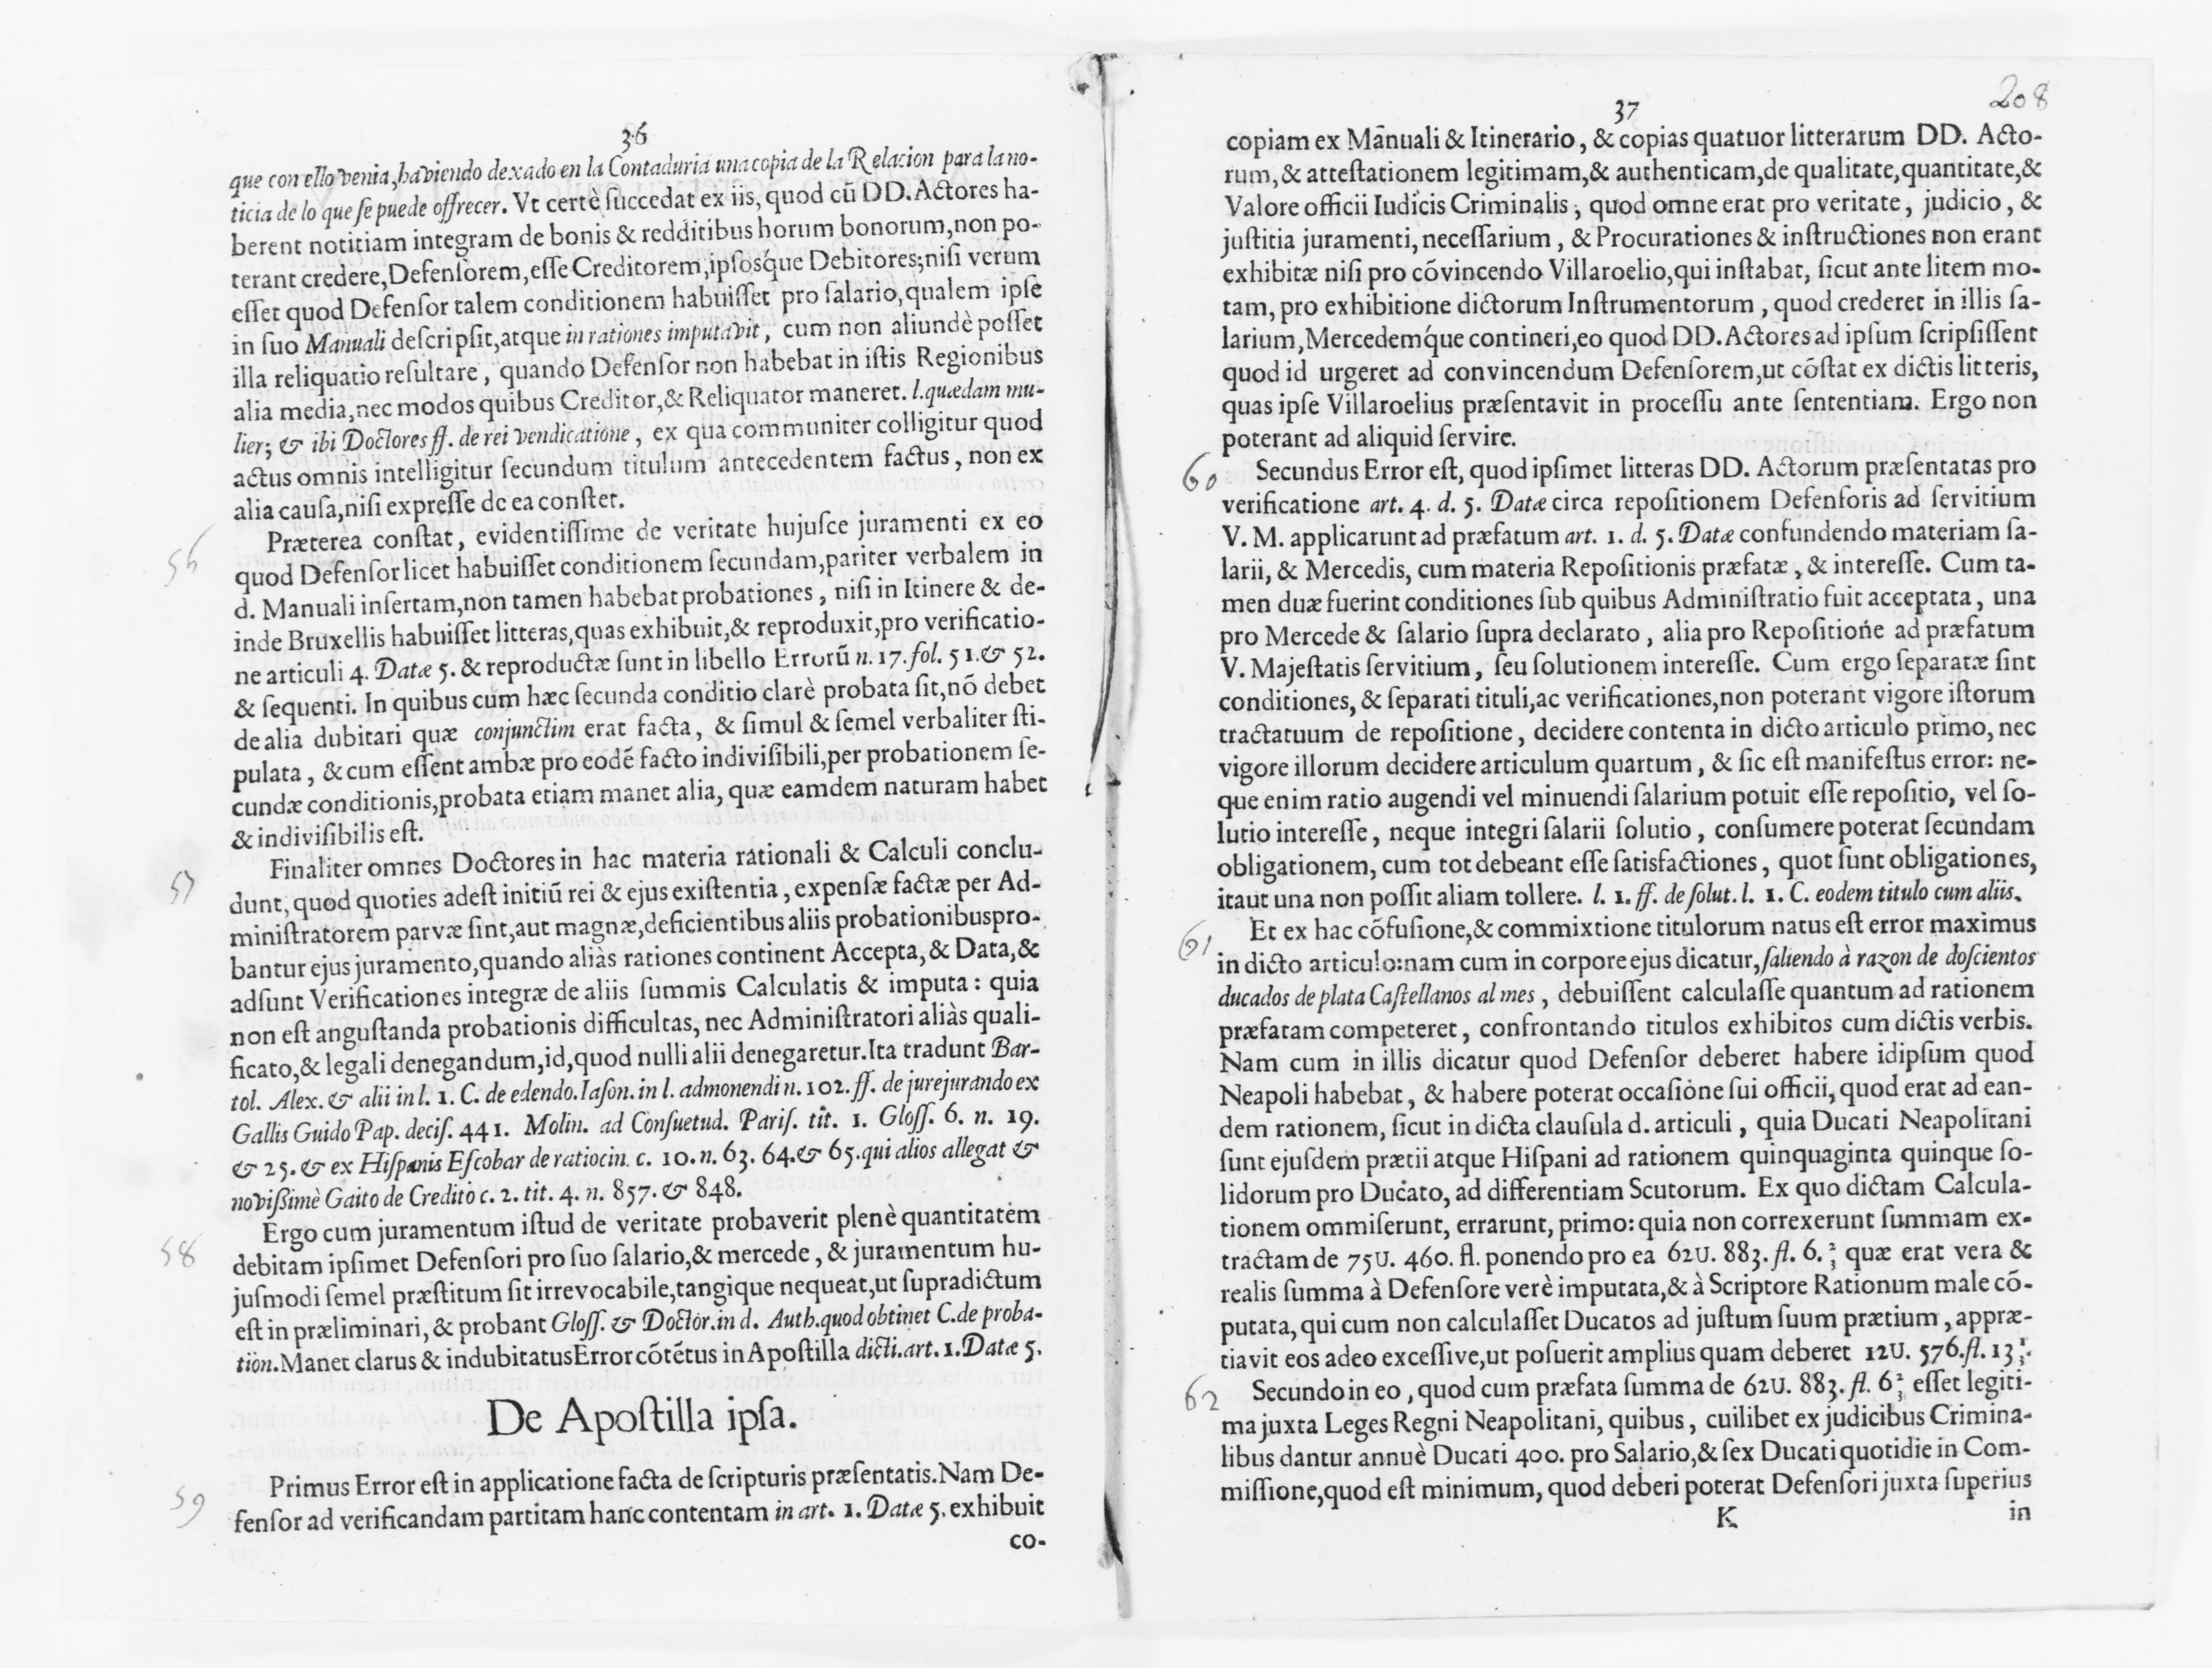 36
que con ello venia, haviendo dexado en la Contaduria una copia de la Relacion para la no-
ticia de lo que ſe puede offrecer. Vt certè ſuccedat ex iis, quod cũ DD. Actores ha-
berent notitiam integram de bonis & redditibus horum bonorum, non po-
terant credere, Defenſorem, eſſe Creditorem, ipſoſque Debitores; niſi verum
eſſet quod Defenſor talem conditionem habuiſſet pro ſalario, qualem ipſe
in ſuo Manuali deſcripſit, atque in rationes imputavit, cum non aliundè poſſet
illa reliquatio reſultare, quando Defenſor non habebat in iſtis Regionibus
alia media, nec modos quibus Creditor, & Reliquator maneret. l. quædam mu-
lier; & ibi Doctores ff. de rei vendicatione, ex qua communiter colligitur quod
actus omnis intelligitur ſecundum titulum antecedentem factus, non ex
alia cauſa, niſi expreſſe de ea conſtet.
56 Præterea conſtat, evidentiſſime de veritate hujuſce juramenti ex eo
quod Defenſor licet habuiſſet conditionem ſecundam, pariter verbalem in
d. Manuali inſertam, non tamen habebat probationes, niſi in Itinere & de-
inde Bruxellis habuiſſet litteras, quas exhibuit, & reproduxit, pro verificatio-
ne articuli 4. Datæ 5. & reproductæ ſunt in libello Errorũ n. 17. fol. 51. & 52.
& ſequenti. In quibus cum hæc ſecunda conditio clarè probata ſit, nõ debet
de alia dubitari quæ conjunctim erat facta, & ſimul & ſemel verbaliter ſti-
pulata, & cum eſſent ambæ pro eodẽ facto indiviſibili, per probationem ſe-
cundæ conditionis, probata etiam manet alia, quæ eamdem naturam habet
& indiviſibilis eſt.
57 Finaliter omnes Doctores in hac materia rationali & Calculi conclu-
dunt, quod quoties adeſt initiũ rei & ejus exiſtentia, expenſæ factæ per Ad-
miniſtratorem parvæ ſint, aut magnæ, deficientibus aliis probationibus pro-
bantur ejus juramento, quando aliàs rationes continent Accepta, & Data, &
adſunt Verificationes integræ de aliis ſummis Calculatis & imputa: quia
non eſt anguſtanda probationis difficultas, nec Adminiſtratori aliàs quali-
ficato, & legali denegandum, id, quod nulli alii denegaretur. Ita tradunt Bar-
tol. Alex. & alii in l. 1. C. de edendo. Iaſon. in l. admonendi n. 102. ff. de jurejurando ex
Gallis Guido Pap. deciſ. 441. Molin. ad Conſuetud. Pariſ. tit. 1. Gloſſ. 6. n. 19.
& 25. & ex Hiſpanis Eſcobar de ratiocin. c. 10. n. 63. 64. & 65. qui alios allegat &
noviſſimè Gaito de Credito c. 2. tit. 4. n. 857. & 848.
58 Ergo cum juramentum iſtud de veritate probaverit plenè quantitatem
debitam ipſimet Defenſori pro ſuo ſalario, & mercede, & juramentum hu-
juſmodi ſemel præſtitum ſit irrevocabile, tangique nequeat, ut ſupradictum
eſt in præliminari, & probant Gloſſ. & Doctor. in d. Auth. quod obtinet C. de proba-
tion. Manet clarus & indubitatus Error cõtẽtus in Apoſtilla dicti. art. 1. Datæ 5.
De Apoſtilla ipſa.
59 Primus Error eſt in applicatione facta de ſcripturis præſentatis. Nam De-
fenſor ad verificandam partitam hanc contentam in art. 1. Datæ 5. exhibuit
co-
37
208
copiam ex Manuali & Itinerario, & copias quatuor litterarum DD. Acto-
rum, & atteſtationem legitimam, & authenticam, de qualitate, quantitate, &
Valore officii Iudicis Criminalis, quod omne erat pro veritate, judicio, &
juſtitia juramenti, neceſſarium, & Procurationes & inſtructiones non erant
exhibitæ niſi pro cõvincendo Villaroelio, qui inſtabat, ſicut ante litem mo-
tam, pro exhibitione dictorum Inſtrumentorum, quod crederet in illis ſa-
larium, Mercedemque contineri, eo quod DD. Actores ad ipſum ſcripſiſſent
quod id urgeret ad convincendum Defenſorem, ut cõſtat ex dictis litteris,
quas ipſe Villaroelius præſentavit in proceſſu ante ſententiam. Ergo non
poterant ad aliquid ſervire.
60 Secundus Error eſt, quod ipſimet litteras DD. Actorum præſentatas pro
verificatione art. 4. d. 5. Datæ circa repoſitionem Defenſoris ad ſervitium
V. M. applicarunt ad præfatum art. 1. d. 5. Datæ confundendo materiam ſa-
larii, & Mercedis, cum materia Repoſitionis præfatæ, & intereſſe. Cum ta-
men duæ fuerint conditiones ſub quibus Adminiſtratio fuit acceptata, una
pro Mercede & ſalario ſupra declarato, alia pro Repoſitione ad præfatum
V. Majeſtatis ſervitium, ſeu ſolutionem intereſſe. Cum ergo ſeparatæ ſint
conditiones, & ſeparati tituli, ac verificationes, non poterant vigore iſtorum
tractatuum de repoſitione, decidere contenta in dicto articulo primo, nec
vigore illorum decidere articulum quartum, & ſic eſt manifeſtus error: ne-
que enim ratio augendi vel minuendi ſalarium potuit eſſe repoſitio, vel ſo-
lutio intereſſe, neque integri ſalarii ſolutio, conſumere poterat ſecundam
obligationem, cum tot debeant eſſe ſatisfactiones, quot ſunt obligationes,
itaut una non poſſit aliam tollere. l. 1. ff. de ſolut. l. 1. C. eodem titulo cum aliis.
61 Et ex hac cõfuſione, & commixtione titulorum natus eſt error maximus
in dicto articulo: nam cum in corpore ejus dicatur, ſaliendo à razon de doſcientos
ducados de plata Caſtellanos al mes, debuiſſent calculaſſe quantum ad rationem
præfatam competeret, confrontando titulos exhibitos cum dictis verbis.
Nam cum in illis dicatur quod Defenſor deberet habere idipſum quod
Neapoli habebat, & habere poterat occaſione ſui officii, quod erat ad ean-
dem rationem, ſicut in dicta clauſula d. articuli, quia Ducati Neapolitani
ſunt ejuſdem prætii atque Hiſpani ad rationem quinquaginta quinque ſo-
lidorum pro Ducato, ad differentiam Scutorum. Ex quo dictam Calcula-
tionem ommiſerunt, errarunt, primo: quia non correxerunt ſummam ex-
tractam de 75U. 460. fl. ponendo pro ea 62U. 883. fl. 6. ⅔ quæ erat vera &
realis ſumma à Defenſore verè imputata, & à Scriptore Rationum male cõ-
putata, qui cum non calculaſſet Ducatos ad juſtum ſuum prætium, appræ-
tiavit eos adeo exceſſive, ut poſuerit amplius quam deberet 12U. 576. fl. 13 ⅓.
62 Secundo in eo, quod cum præfata ſumma de 62U. 883. fl. 6 ⅔ eſſet legiti-
ma juxta Leges Regni Neapolitani, quibus, cuilibet ex judicibus Crimina-
libus dantur annuè Ducati 400. pro Salario, & ſex Ducati quotidie in Com-
miſſione, quod eſt minimum, quod deberi poterat Defenſori juxta ſuperius
K in